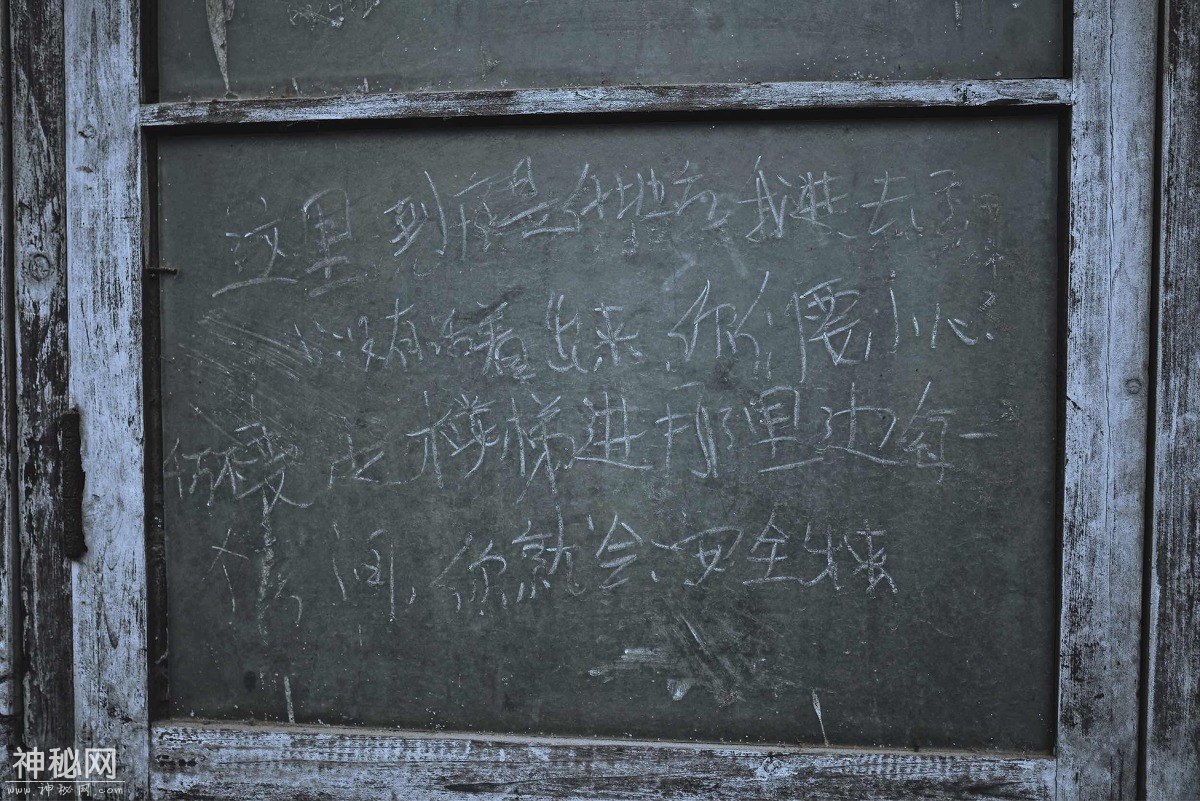 这里到底是什地方我进去了
没有活着出来.你们要小心.
你不要走楼梯进那里边每一
个房间,你就会安全出来
神秘网
www.神秘网.com